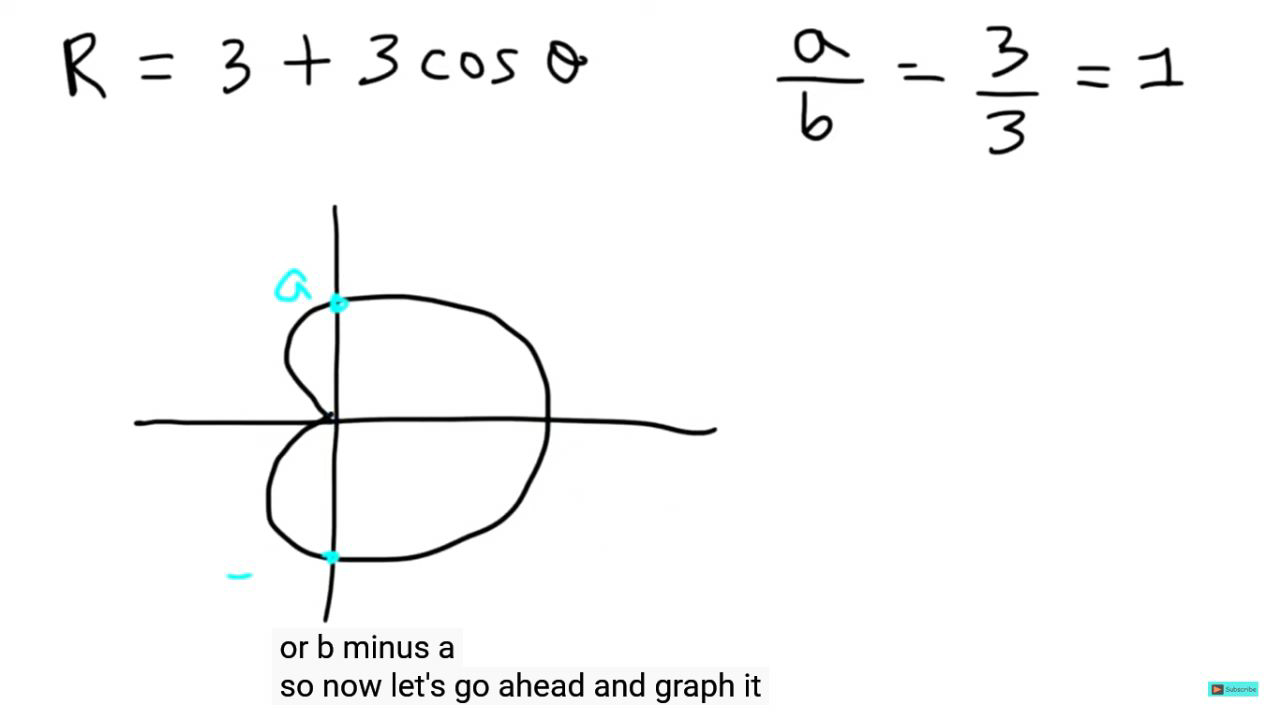 R = 3 + 3 cos θ
a/b = 3/3 = 1
a
-
or b minus a
so now let's go ahead and graph it
Subscribe